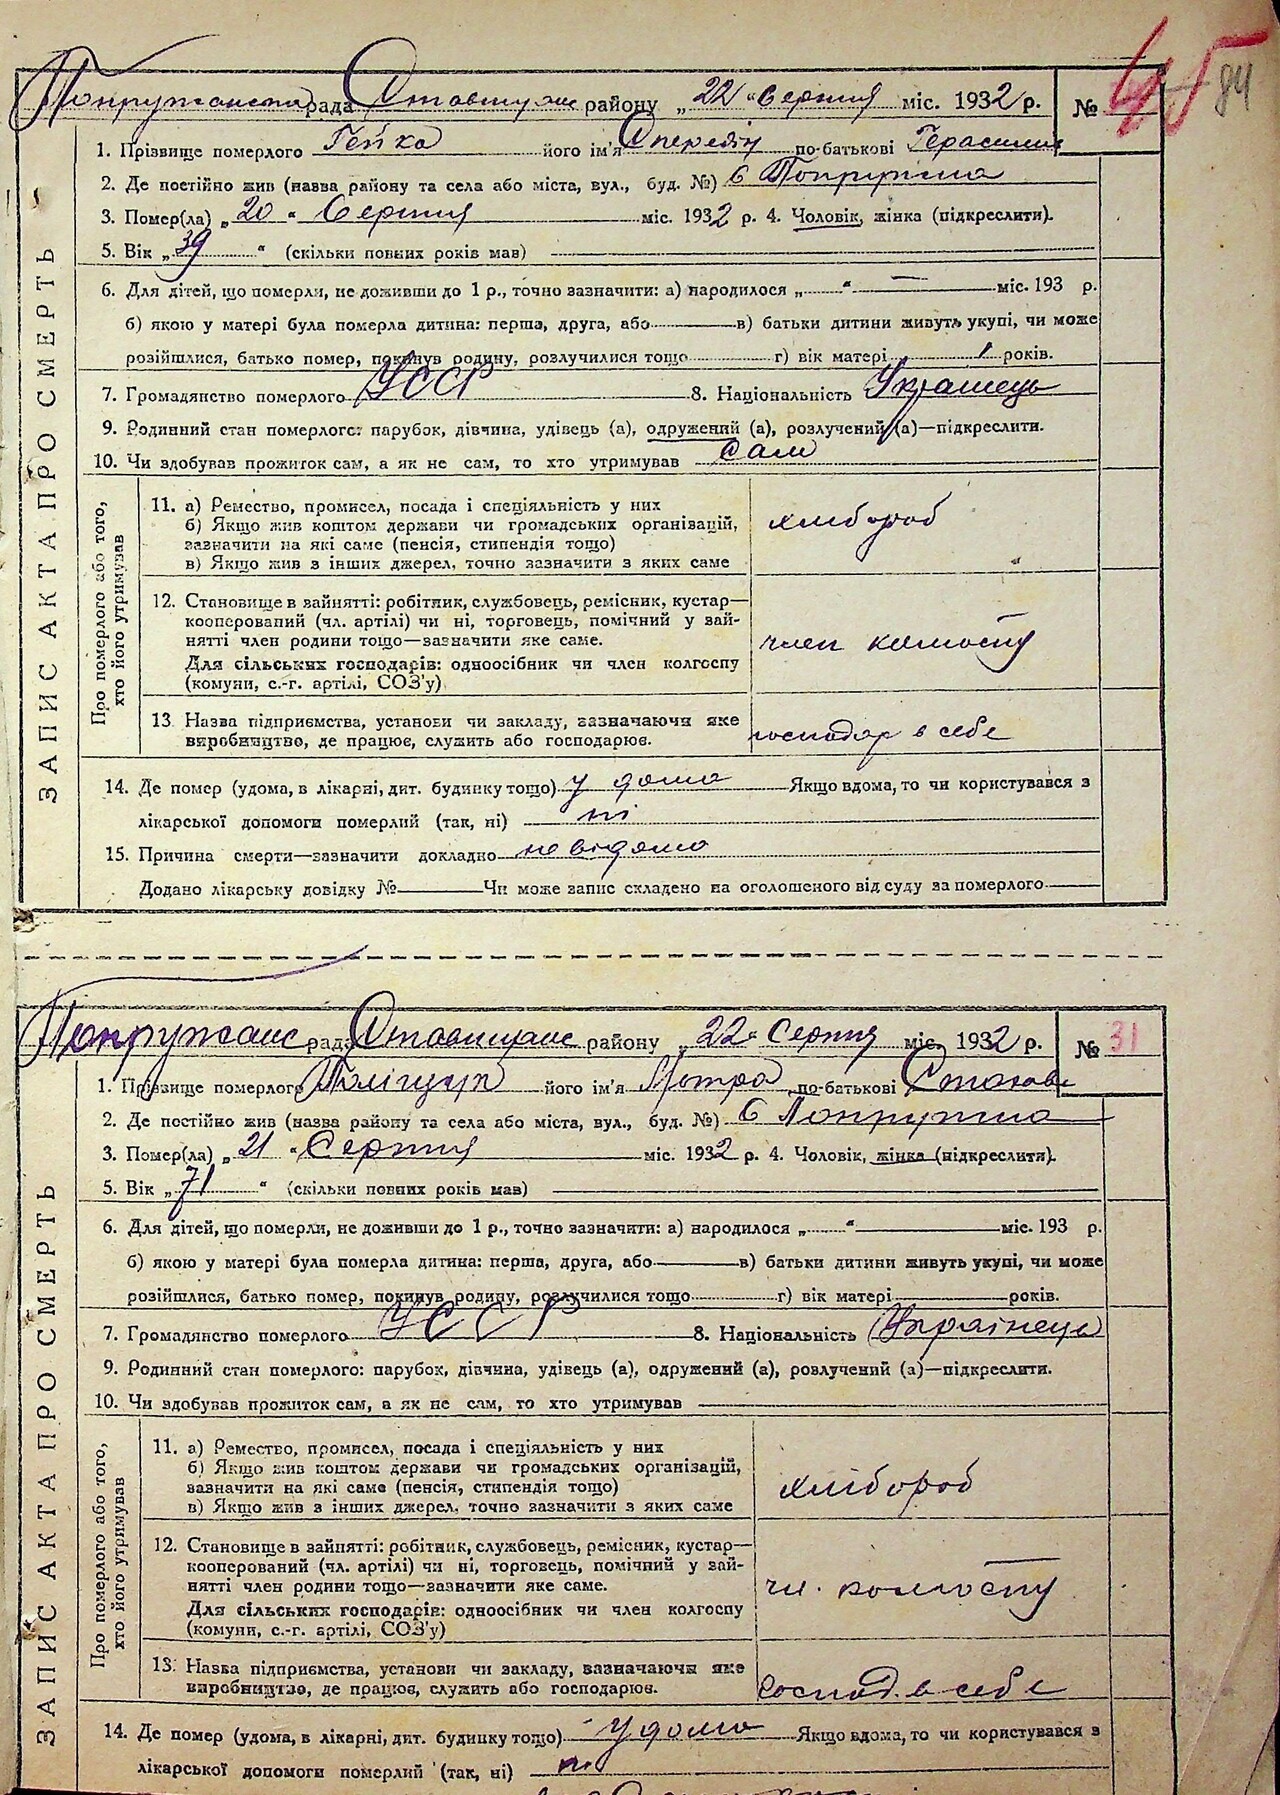 45
84
Попружанська рада Ставищан району „22“ Серпня міс. 1932 р. №
1. Прізвище померлого Гейко його ім'я по-батькові Герасим
2. Де постійно жив (назва району та села або міста, вул., буд. №) с Попружна
3. Помер(ла) „20“ Серпня міс. 1932 р. 4. Чоловік, жінка (підкреслити).
5. Вік „39“ (скільки повних років мав)
6. Для дітей, що померли, не доживши до 1 р., точно зазначити: а) народилося „ “ міс. 193 р.
б) якою у матері була померла дитина: перша, друга, або в) батьки дитини живуть укупі, чи може
розійшлися, батько помер, покинув родину, розлучилися тощо г) вік матері років.
7. Громадянство померлого УССР 8. Національність Українець
9. Родинний стан померлого: парубок, дівчина, удівець (а), одружений (а), розлучений (а)—підкреслити.
10. Чи здобував прожиток сам, а як не сам, то хто утримував сам
ЗАПИС АКТА ПРО СМЕРТЬ
Про померлого або того,
хто його утримував
11. а) Ремество, промисел, посада і спеціяльність у них
б) Якщо жив коштом держави чи громадських організацій,
зазначити на які саме (пенсія, стипендія тощо)
в) Якщо жив з інших джерел, точно зазначити з яких саме
хлібороб
12. Становище в зайнятті: робітник, службовець, ремісник, кустар—
кооперований (чл. артілі) чи ні, торговець, помічний у зай-
нятті член родини тощо—зазначити яке саме.
Для сільських господарів: одноосібник чи член колгоспу
(комуни, с.-г. артілі, СОЗ'у)
член колгоспу
13 Назва підприємства, установи чи закладу, зазначаючи яке
виробництво, де працює, служить або господарює.
господар в себе
14. Де помер (удома, в лікарні, дит. будинку тощо) у дома Якщо вдома, то чи користувався з
лікарської допомоги померлий (так, ні) ні
15. Причина смерти—зазначити докладно невідома
Додано лікарську довідку № Чи може запис складено на оголошеного від суду за померлого
Попружанс рада Ставищанс району „22“ Серпня міс. 1932 р. № 31
1. Прізвище померлого Поліщук його ім'я Мотра по-батькові
2. Де постійно жив (назва району та села або міста, вул., буд. №) с Попружна
3. Помер(ла) „21“ Серпня міс. 1932 р. 4. Чоловік, жінка (підкреслити).
5. Вік „71“ (скільки повних років мав)
6. Для дітей, що померли, не доживши до 1 р., точно зазначити: а) народилося „ “ міс. 193 р.
б) якою у матері була померла дитина: перша, друга, або в) батьки дитини живуть укупі, чи може
розійшлися, батько помер, покинув родину, розлучилися тощо г) вік матері років.
7. Громадянство померлого УССР 8. Національність Українець
9. Родинний стан померлого: парубок, дівчина, удівець (а), одружений (а), розлучений (а)—підкреслити.
10. Чи здобував прожиток сам, а як не сам, то хто утримував
ЗАПИС АКТА ПРО СМЕРТЬ
Про померлого або того,
хто його утримував
11. а) Ремество, промисел, посада і спеціяльність у них
б) Якщо жив коштом держави чи громадських організацій,
зазначити на які саме (пенсія, стипендія тощо)
в) Якщо жив з інших джерел, точно зазначити з яких саме
хлібороб
12. Становище в зайнятті: робітник, службовець, ремісник, кустар—
кооперований (чл. артілі) чи ні, торговець, помічний у зай-
нятті член родини тощо—зазначити яке саме.
Для сільських господарів: одноосібник чи член колгоспу
(комуни, с.-г. артілі, СОЗ'у)
чл. колгоспу
13. Назва підприємства, установи чи закладу, зазначаючи яке
виробництво, де працює, служить або господарює.
господ. в себе
14. Де помер (удома, в лікарні, дит. будинку тощо) удома Якщо вдома, то чи користувався з
лікарської допомоги померлий (так, ні) ні